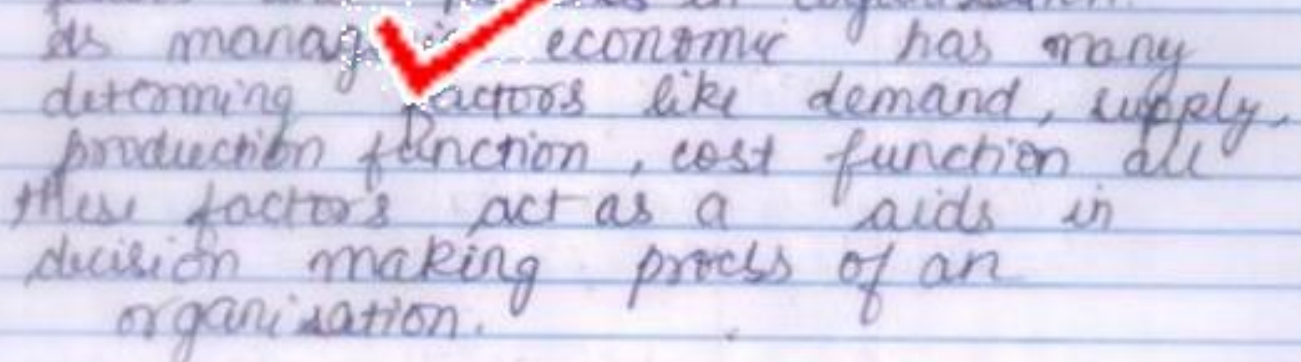 in
As economic has many
determing factors like demand, supply,
production function, cost function all
these factors act as a aids in
decision making procss of an
organisation.